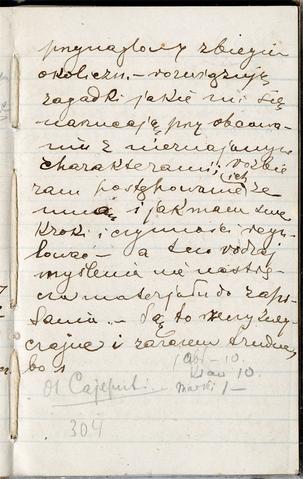 przynaglony zbiegiem
okoliczn. – rozwiązuję
zagadki jakie mi się
narzucają przy obcowa-
niu z nieznajomymi
charakterami, rozbie-
ram postępowanie ich ze
mną i jak mam swe
kroki i czynności regu-
lować – a ten rodzaj
myślenia nie nastrę-
cza materjału do zapi-
sania. – Są to rzeczy zwy-
czajne i zarazem trudne,
bo s
Abs – 10.
10
Ol Cajeputi
1 –
304